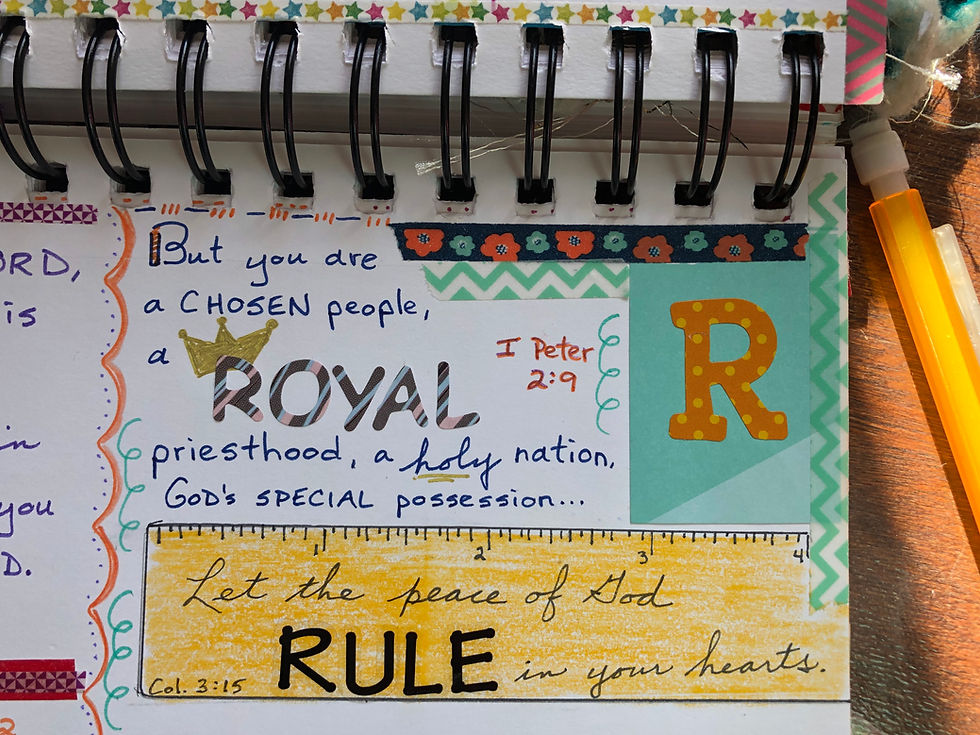 ORD,
is
in
you
D.
But you are
a CHOSEN people,
a ROYAL
I Peter
2:9
R
priesthood, a holy nation,
GOD'S SPECIAL possession...
1 2 3 4
Let the peace of God
RULE in your hearts.
Col. 3:15